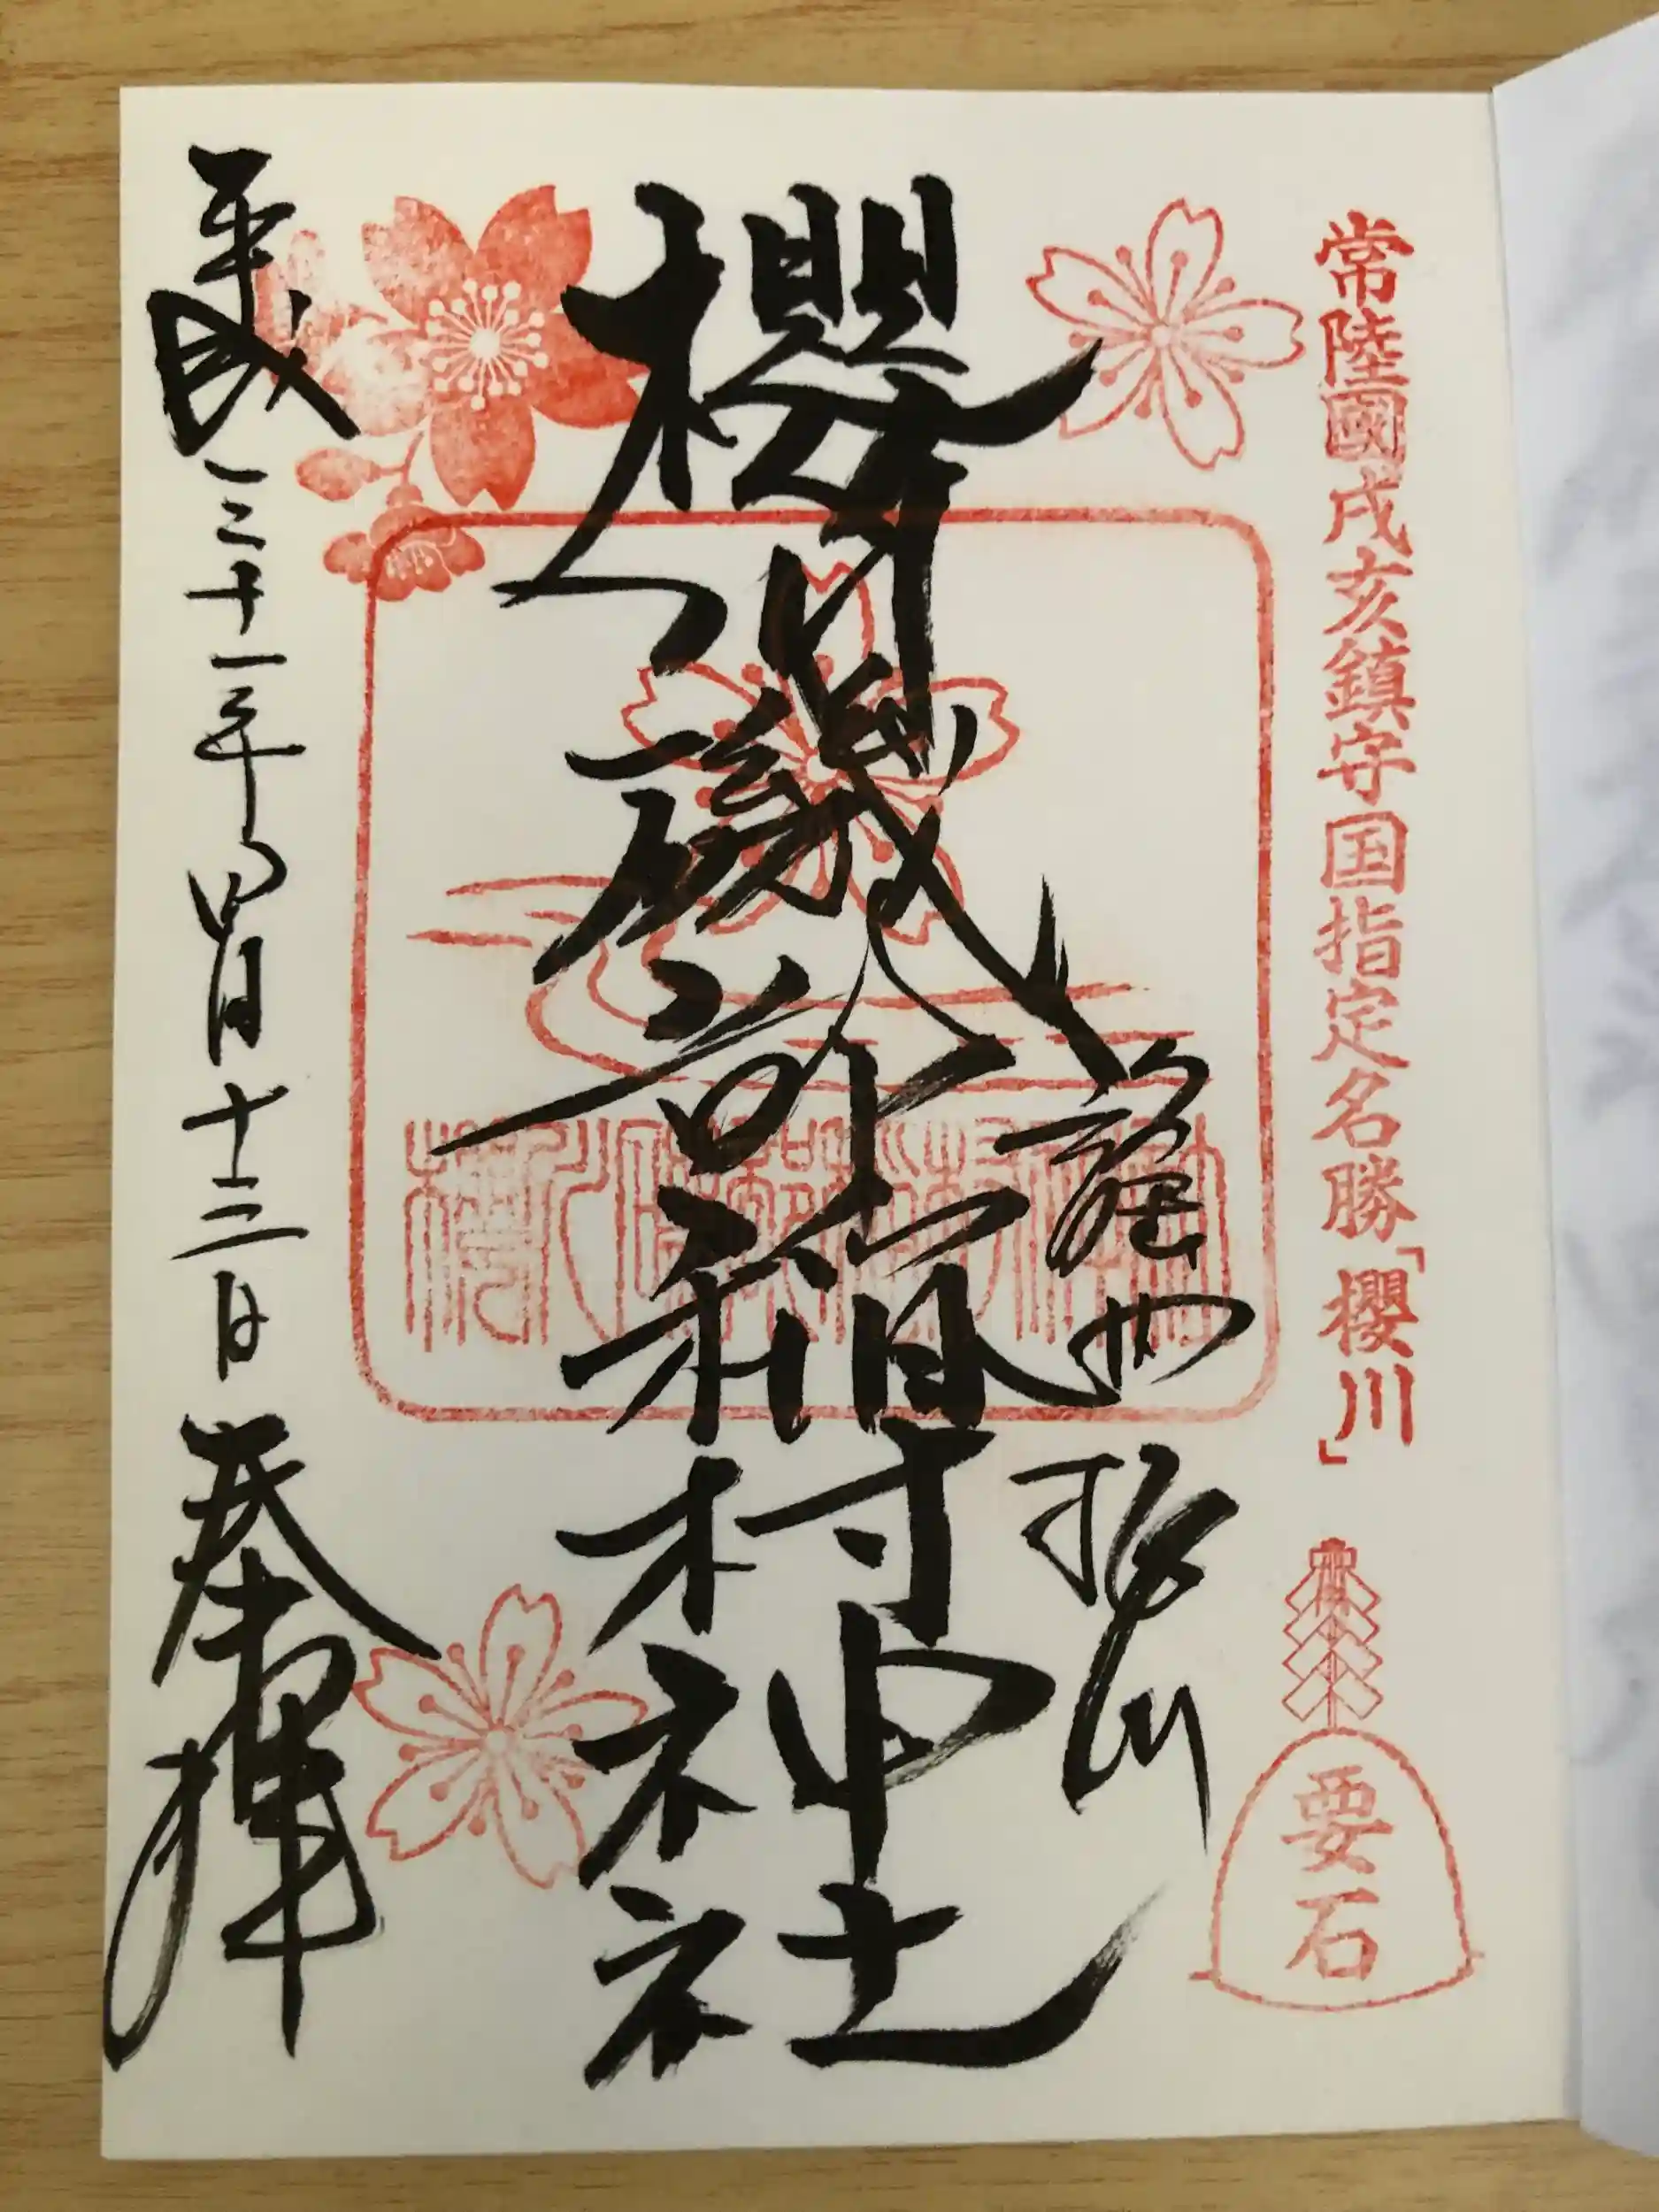 常陸國戌亥鎮守国指定名勝「櫻川」
要石
謡曲 櫻川
櫻川磯部稲村神社
平成三十一年四月十三日 奉拝